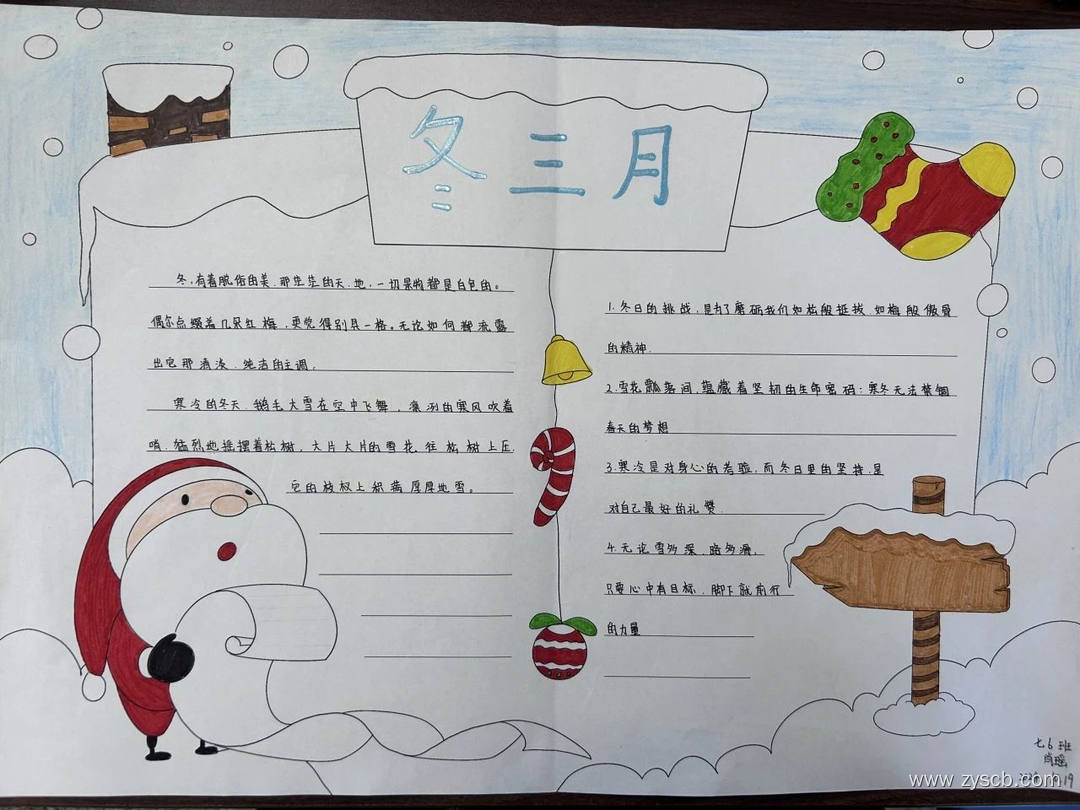 冬三月
冬，有着脱俗的美，那茫茫的天、地，一切景物都是白色的。
偶尔点缀着几朵红梅，更觉得别具一格。无论如何都流露
出它那清淡、纯洁的主调。
寒冷的冬天，鹅毛大雪在空中飞舞，凛冽的寒风吹着
哨，猛烈地摇摆着松树，大片大片的雪花往松树上压，
它的枝杈上积满厚厚地雪。
1.冬日的挑战，是为了磨砺我们如松般挺拔，如梅般傲骨
的精神.
2.雪花飘落间，蕴藏着坚韧的生命密码：寒冬无法禁锢
春天的梦想
3.寒冷是对身心的考验，而冬日里的坚持，是
对自己最好的礼赞.
4.无论雪多深，路多滑，
只要心中有目标，脚下就有前行
的力量
七6班
瑶
19
www.zyscb.com